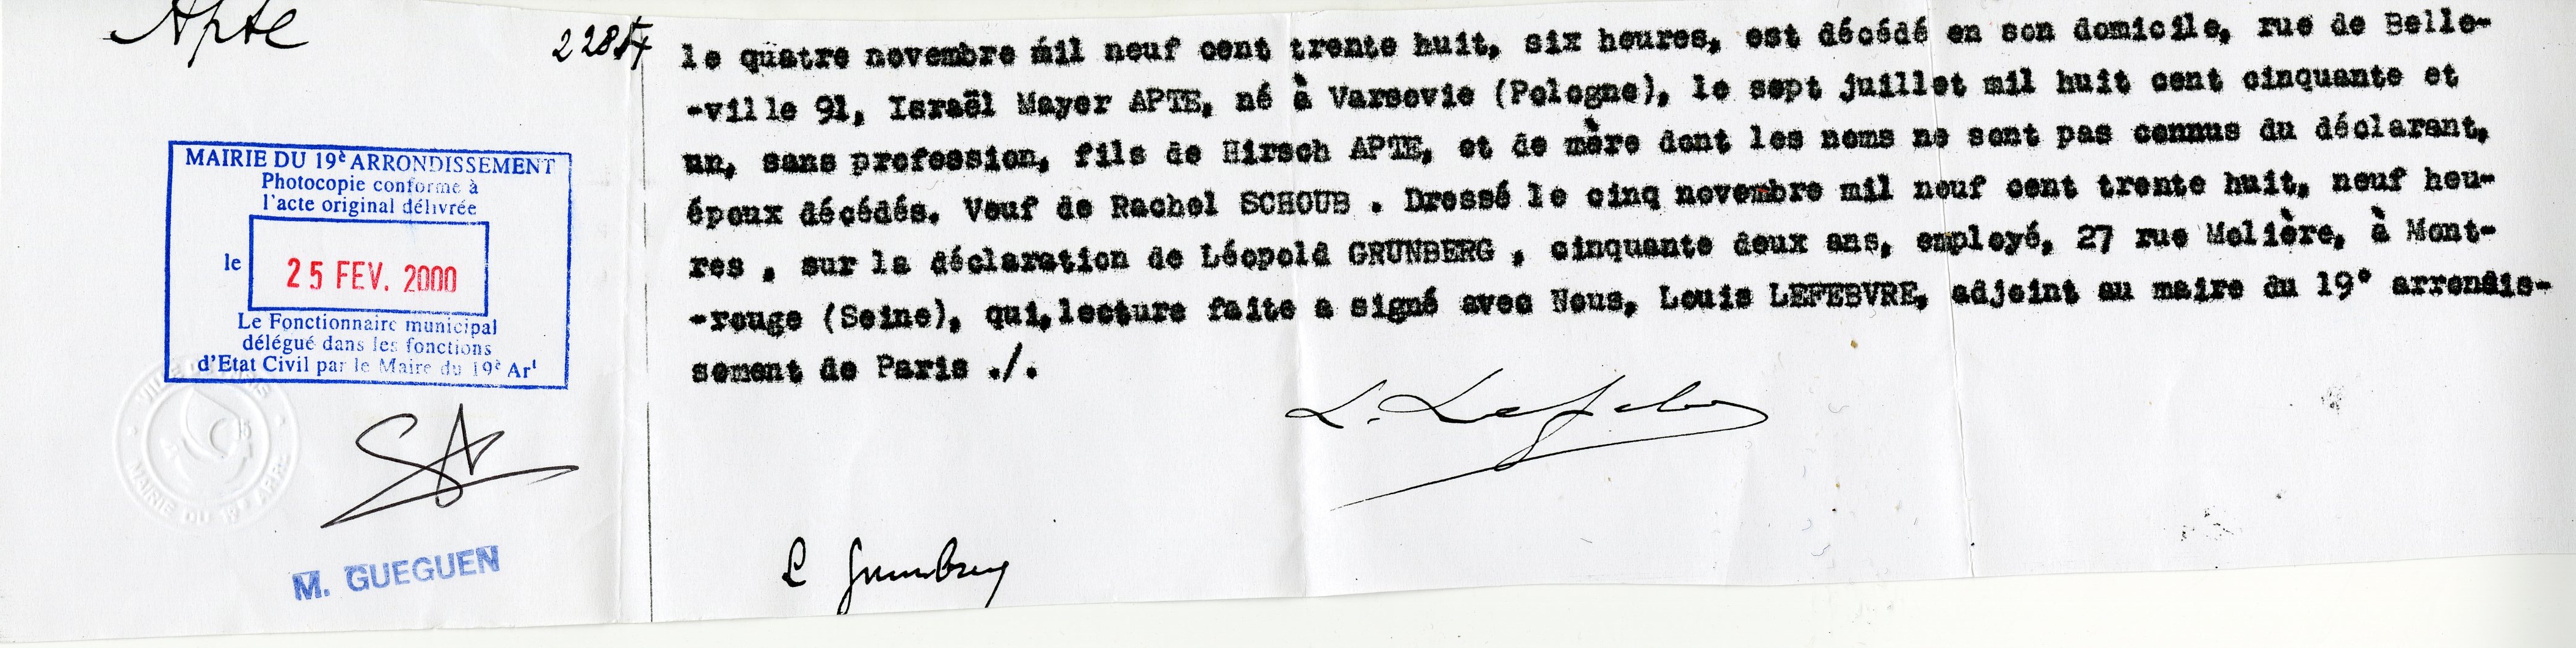 Apte
le quatre novembre mil neuf cent trente huit, six heures, est décédé en son domicile, rue de Belle-
-ville 91, Israël Mayer APTE, né à Varsovie (Pologne), le sept juillet mil huit cent cinquante et
un, sans profession, fils de Hirsch APTE, et de mère dont les noms ne sont pas connus du déclarant,
époux décédés. Veuf de Rachel SCHOUB . Dressé le cinq novembre mil neuf cent trente huit, neuf heu-
res , sur la déclaration de Léopold GRUNBERG , cinquante deux ans, employé, 27 rue Molière, à Mont-
-rouge (Seine), qui,lecture faite a signé avec Nous, Louis LEFEBVRE, adjoint au maire du 19° arrondis-
sement de Paris ./.
MAIRIE DU 19è ARRONDISSEMENT
Photocopie conforme à
l'acte original délivrée
le 25 FEV. 2000
Le Fonctionnaire municipal
délégué dans les fonctions
d'Etat Civil par le Maire du 19è Art
MAIRIE DU 19e ARRT
M. GUEGUEN
L. Lefebvre
L Grunberg